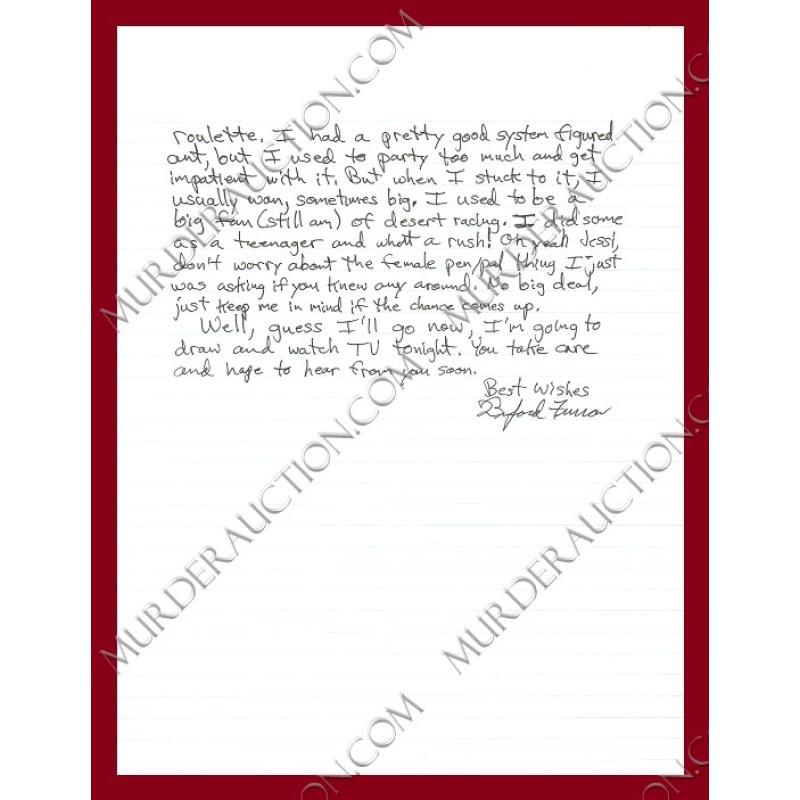 roulette. I had a pretty good system figured
out, but I used to party too much and get
impatient with it. But when I stuck to it, I
usually won, sometimes big. I used to be a
big fan (still am) of desert racing. I did some
as a teenager and what a rush! Oh yeah Jessi,
don't worry about the female pen/pal thing I just
was asking if you knew any around. No big deal,
just keep me in mind if the chance comes up.
Well, guess I'll go now, I'm going to
draw and watch TV tonight. You take care
and hope to hear from you soon.
Best Wishes
Buford Furrow
MURDERAUCTION.COM
MURDERAUCTION.COM
MURDERAUCTION.COM
MURDERAUCTION.COM
MURDERAUCTION.COM
MURDERAUCTION.COM